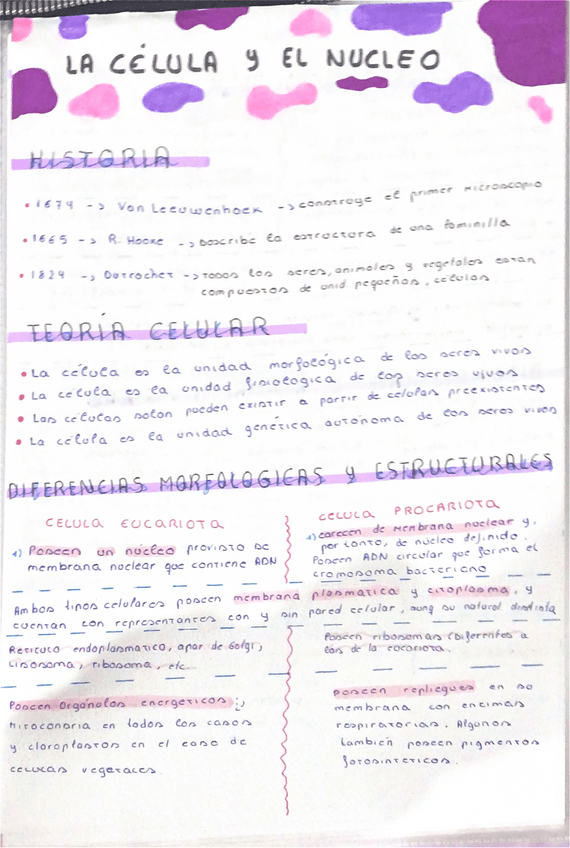 LA CÉLULA Y EL NUCLEO
HISTORIA
• 1674 -> Van Leeuwenhoek -> construye el primer microscopio
• 1665 -> R. Hooke -> Describe la estructura de una
• 1824 -> Dutrochet -> Todos los seres, animales y vegetales están
compuestos de unid pequeñas, células
TEORÍA CELULAR
• La célula es la unidad morfológica de los seres vivos
• La célula es la unidad fisiologica de los seres vivos
• Las células solon pueden existir a partir de celulas preexistentes
• La célula es la unidad genética autónoma de los seres vivos
DIFERENCIAS MORFOLOGICAS Y ESTRUCTURALES
CELULA EUCARIOTA
Poseen un núcleo provisto de
membrana nuclear que contiene ADN
CELULA PROCARIOTA
carecen de membrana nuclear y,
por tanto, de núcleo definido.
Poseen ADN circular que forma el
cromosoma bacteriano
Ambos tipos celulares poseen membrana plasmatica y citoplasma, y
cuentan con representantes con y sin pared celular, aunq su natural distinta
Reticulo endoplasmatico, apar de Golgi,
Lisosoma, ribosoma, etc.
Poseen ribosomas (Diferentes a
los de la eucariota.
Poseen Orgánulos energeticos:
Mitocondria en todos los casos
y cloroplastos en el caso de
celulas vegetales.
poseen repliegues en su
membrana con enzimas
respiratorias. Algunos
también poseen pigmentos
fotosinteticos.